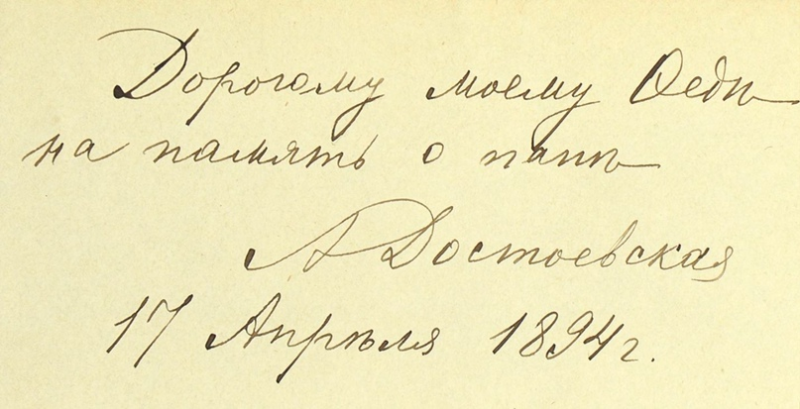 Дорогому моему Ѳедѣ
на память о папѣ
АДостоевская
17 Апрѣля 1894 г.